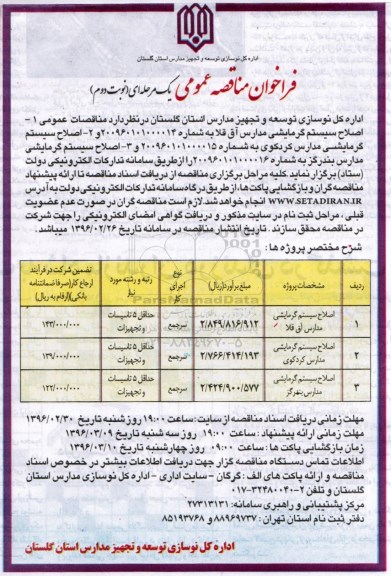 اداره کل نوسازی توسعه و تجهیز مدارس استان گلستان
فراخوان مناقصه عمومی یک مرحله‌ای (نوبت دوم)
اداره کل نوسازی توسعه و تجهیز مدارس استان گلستان در نظر دارد مناقصات عمومی ۱ -
اصلاح سیستم گرمایشی مدارس آق قلا به شماره ۲۰۰۹۶۰۱۰۱۰۰۰۰۱۴ و ۲- اصلاح سیستم
گرمایشی مدارس کردکوی به شماره ۲۰۰۹۶۰۱۰۱۰۰۰۰۱۵ و ۳- اصلاح سیستم گرمایشی
مدارس بندرگز به شماره ۲۰۰۹۶۰۱۰۱۰۰۰۰۱۶ را از طریق سامانه تدارکات الکترونیکی دولت
(ستاد) برگزار نماید کلیه مراحل برگزاری مناقصه از دریافت اسناد مناقصه تا ارائه پیشنهاد
مناقصه گران و بازگشایی پاکت ها، از طریق درگاه سامانه تدارکات الکترونیکی دولت به آدرس
WWW.SETADIRAN.IR انجام خواهد شد. لازم است مناقصه گران در صورت عدم عضویت
قبلی ، مراحل ثبت نام در سایت مذکور و دریافت گواهی امضای الکترونیکی را جهت شرکت
در مناقصه محقق سازند . تاریخ انتشار مناقصه در سامانه تاریخ ۱۳۹۶/۰۲/۲۶ میباشد.
شرح مختصر پروژه ها :
ردیف مشخصات پروژه مبلغ برآورد (ریال) نوع اجرای کار رتبه و رشته مورد نیاز تضمین شرکت در فرآیند ارجاع کار (صرفا ضمانتنامه بانکی) (ارقام به ریال)
۱ اصلاح سیستم گرمایشی مدارس آق قلا ۲/۸۴۹/۸۱۶/۹۱۲ سرجمع حداقل ۵ تاسیسات و تجهیزات ۱۴۳/۰۰۰/۰۰۰
۲ اصلاح سیستم گرمایشی مدارس کردکوی ۲/۷۶۶/۴۱۴/۱۹۳ سرجمع حداقل ۵ تاسیسات و تجهیزات ۱۳۹/۰۰۰/۰۰۰
۳ اصلاح سیستم گرمایشی مدارس بندرگز ۲/۴۲۴/۹۰۰/۵۷۷ سرجمع حداقل ۵ تاسیسات و تجهیزات ۱۲۲/۰۰۰/۰۰۰
مهلت زمانی دریافت اسناد مناقصه از سایت : ساعت ۱۹:۰۰ روز شنبه تاریخ ۱۳۹۶/۰۲/۳۰
مهلت زمانی ارائه پیشنهاد : ساعت ۱۹:۰۰ روز سه شنبه تاریخ ۱۳۹۶/۰۳/۰۹
زمان بازگشایی پاکت ها : ساعت ۰۹:۰۰ روز چهارشنبه تاریخ ۱۳۹۶/۰۳/۱۰
اطلاعات تماس دستگاه مناقصه گزار جهت دریافت اطلاعات بیشتر در خصوص اسناد
مناقصه و ارائه پاکت های الف : گرگان - سایت اداری - اداره کل نوسازی مدارس استان
گلستان و تلفن ۲-۳۲۴۸۰۰۴۰-۰۱۷
مرکز پشتیبانی و راهبری سامانه: ۲۷۳۱۳۱۳۱
دفتر ثبت نام استان تهران : ۸۸۹۶۹۷۳۷ و ۸۵۱۹۳۷۶۸
اداره کل نوسازی توسعه و تجهیز مدارس استان گلستان